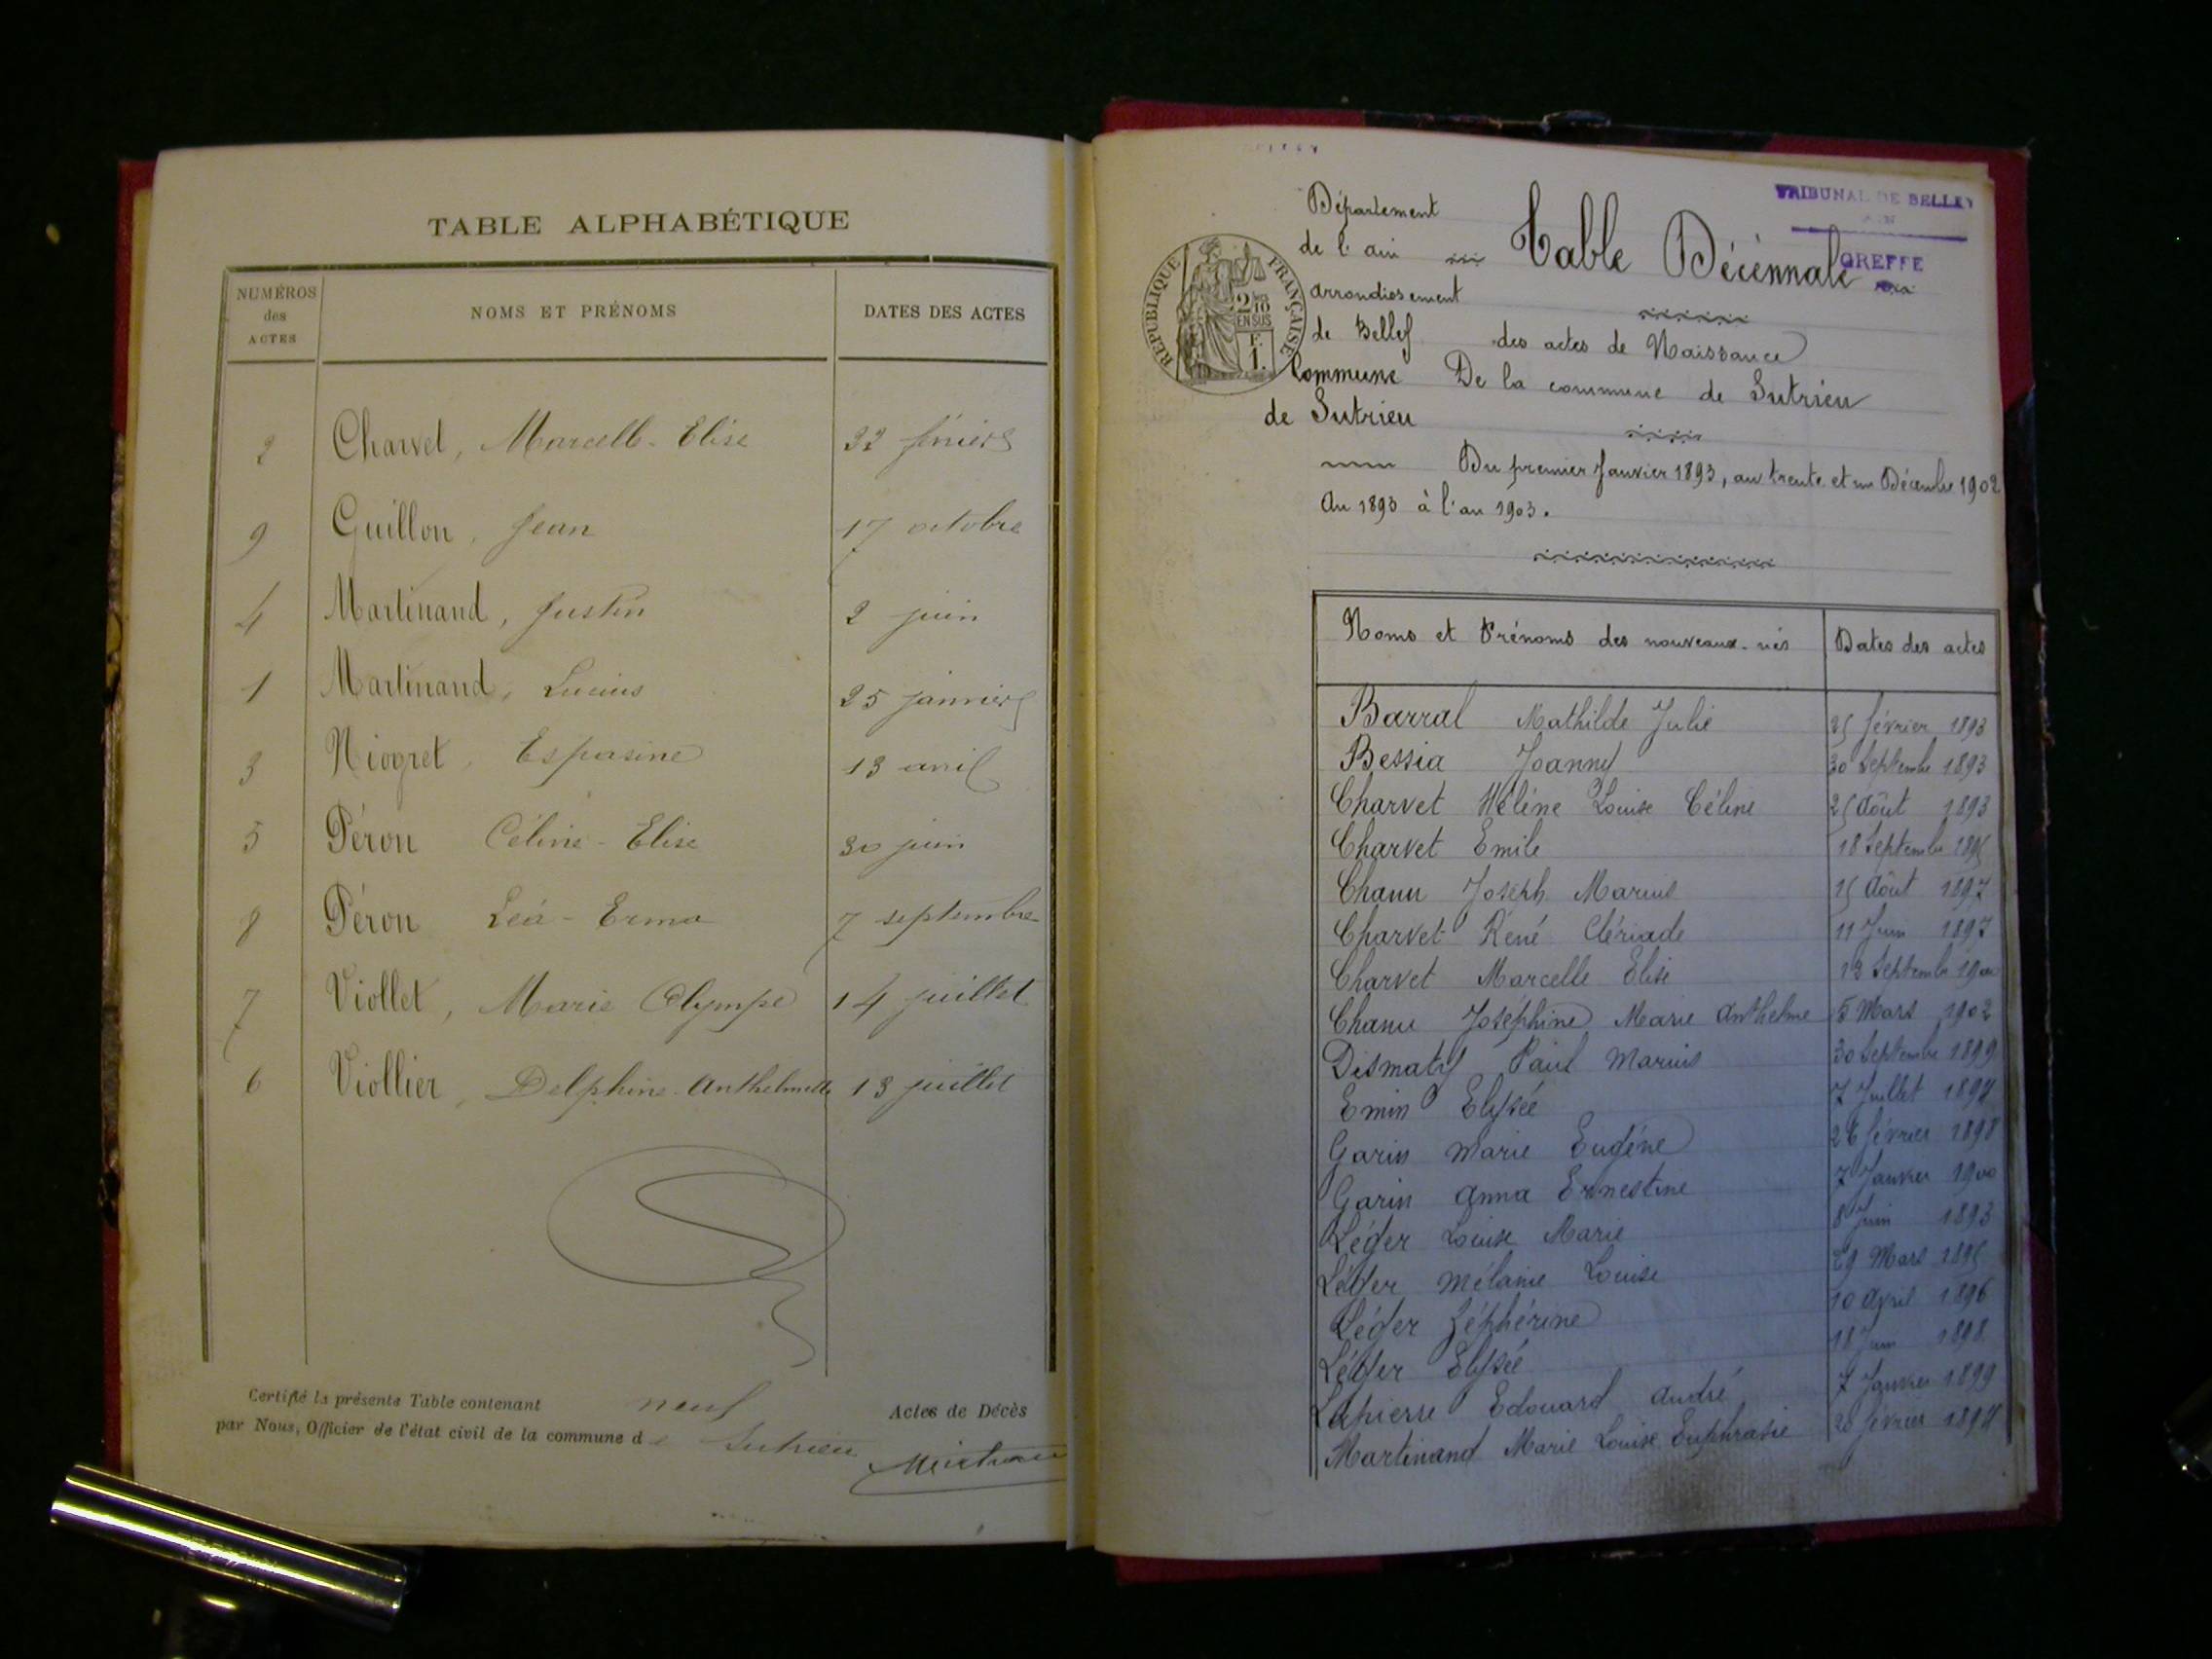 TABLE ALPHABÉTIQUE
NUMÉROS des ACTES
NOMS ET PRÉNOMS
DATES DES ACTES
2 Charvet, Marcelle-Elise 22 février
9 Guillon, Jean 17 octobre
4 Martinand, Justin 2 juin
1 Martinand, Lucius 25 janvier
3 Niogret, Espasine 13 avril
5 Péron Céline-Elise 30 juin
8 Péron Léa-Erma 7 septembre
7 Viollet, Marie Olympe 14 juillet
6 Viollier, Delphine Anthelmette 13 juillet
Certifié la présente Table contenant neuf Actes de Décès
par Nous, Officier de l'état civil de la commune de Sutrieu
TRIBUNAL DE BELLEY
AIN
GREFFE
RÉPUBLIQUE FRANÇAISE
2/10 EN SUS
F. 1.
Département
de l'ain
Table Décennale
arrondissement
de Belley
des actes de Naissance
Commune
De la commune de Sutrieu
de Sutrieu
Du premier Janvier 1893, au trente et un Décembre 1902
An 1893 à l'an 1903.
Noms et Prénoms des nouveaux-nés Dates des actes
Barral Mathilde Julie 25 février 1893
Bessia Joanny 30 Septembre 1893
Charvet Hélène Louise Céline 25 Août 1893
Charvet Emile 18 Septembre 1895
Chanu Joseph Marius 15 Août 1897
Charvet René Clériade 11 Juin 1897
Charvet Marcelle Elise 12 Septembre 1900
Chanu Joséphine Marie Anthelme 5 Mars 1902
Dismaty Paul Marius 30 Septembre 1899
Emin Elysée 7 Juillet 1894
Garin Marie Eugène 26 février 1898
Garin Anna Ernestine 7 Janvier 1900
Léger Louise Marie 8 Juin 1893
Léger Mélanie Louise 29 Mars 1895
Léger Zéphérine 10 Avril 1896
Léger Elysée 18 Juin 1898
Lapierre Edouard André 7 Janvier 1899
Martinand Marie Louise Euphrasie 20 février 1894